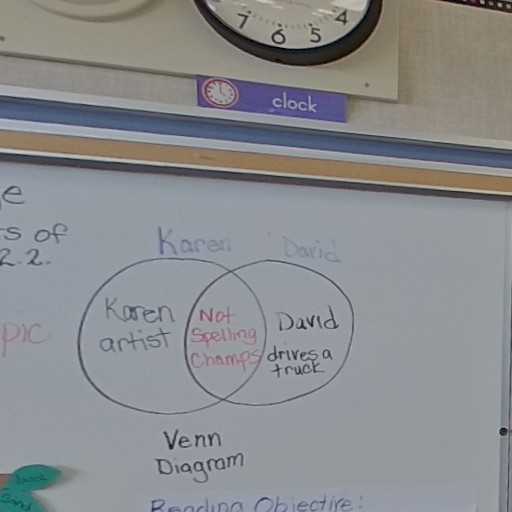 7 6 5 4
clock
e
s of
2.2.
pic
Karen David
Karen
artist
Not
Spelling
Champs
David
drives a
truck
Venn
Diagram
Reading Objective: